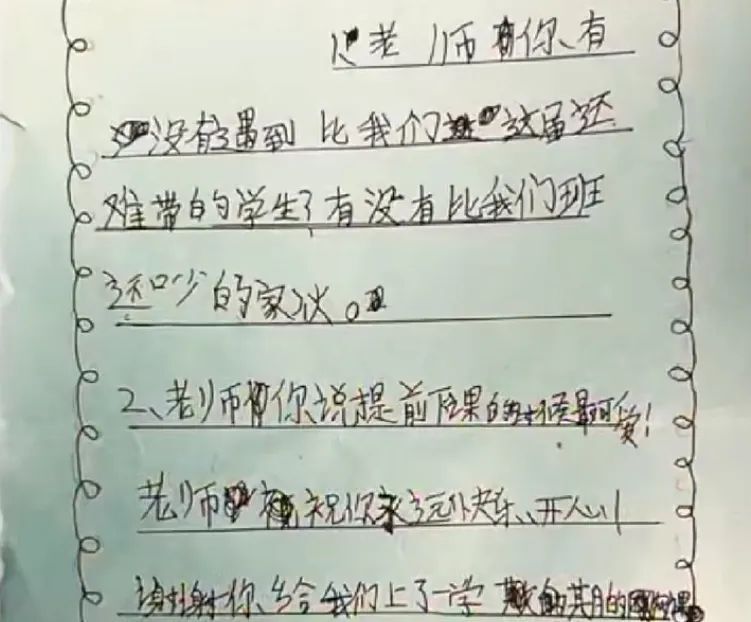 老师 你有
没有遇到比我们 这届还
难带的学生?有没有比我们班
还吵的家伙。
2、老师 你说提前下课的时候最可爱!
老师 祝你永远快乐、开心!
谢谢你、给我们上了一学 期的课